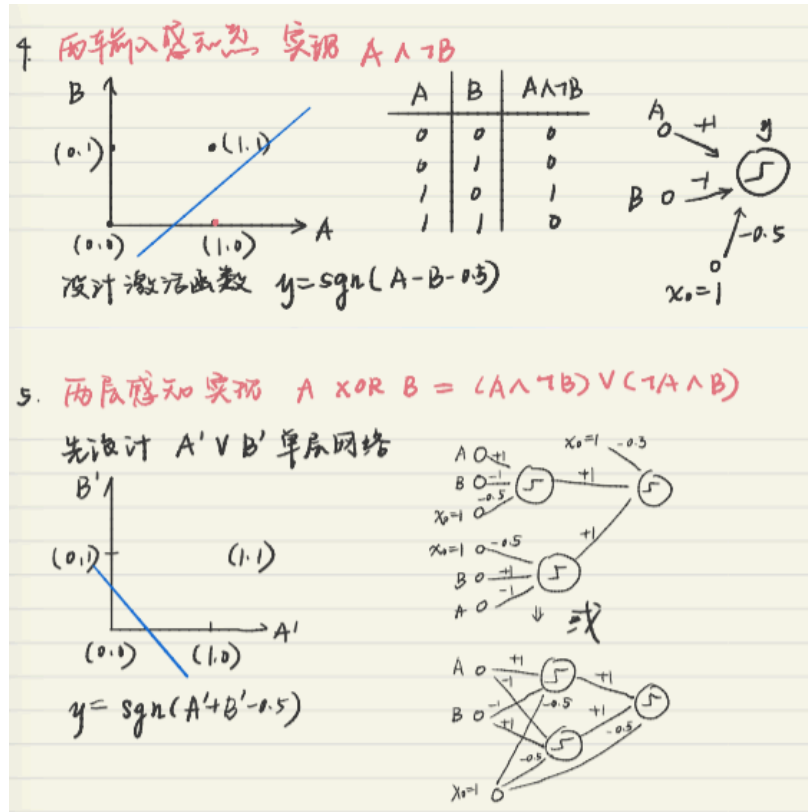 4. 两输入感知器 实现 A∧¬B
B
(0,1)
(1,1)
(0,0)
(1,0)
A
A B A∧¬B
0 0 0
0 1 0
1 0 1
1 1 0
A +1 y
B -1
-0.5
x₀=1
设计激活函数 y=sgn(A-B-0.5)
5. 两层感知 实现 A XOR B = (A∧¬B)∨(¬A∧B)
先设计 A'∨B' 单层网络
B'
(0,1)
(1,1)
(0,0)
(1,0)
A'
y= sgn(A'+B'-0.5)
A +1 x₀=1 -0.3
B -1 +1
-0.5
x₀=1
x₀=1 -0.5 +1
B +1
A -1
⇓ 或
A +1 +1
-1
B -1 -0.5 +1
+1 -0.5
-0.5
x₀=1